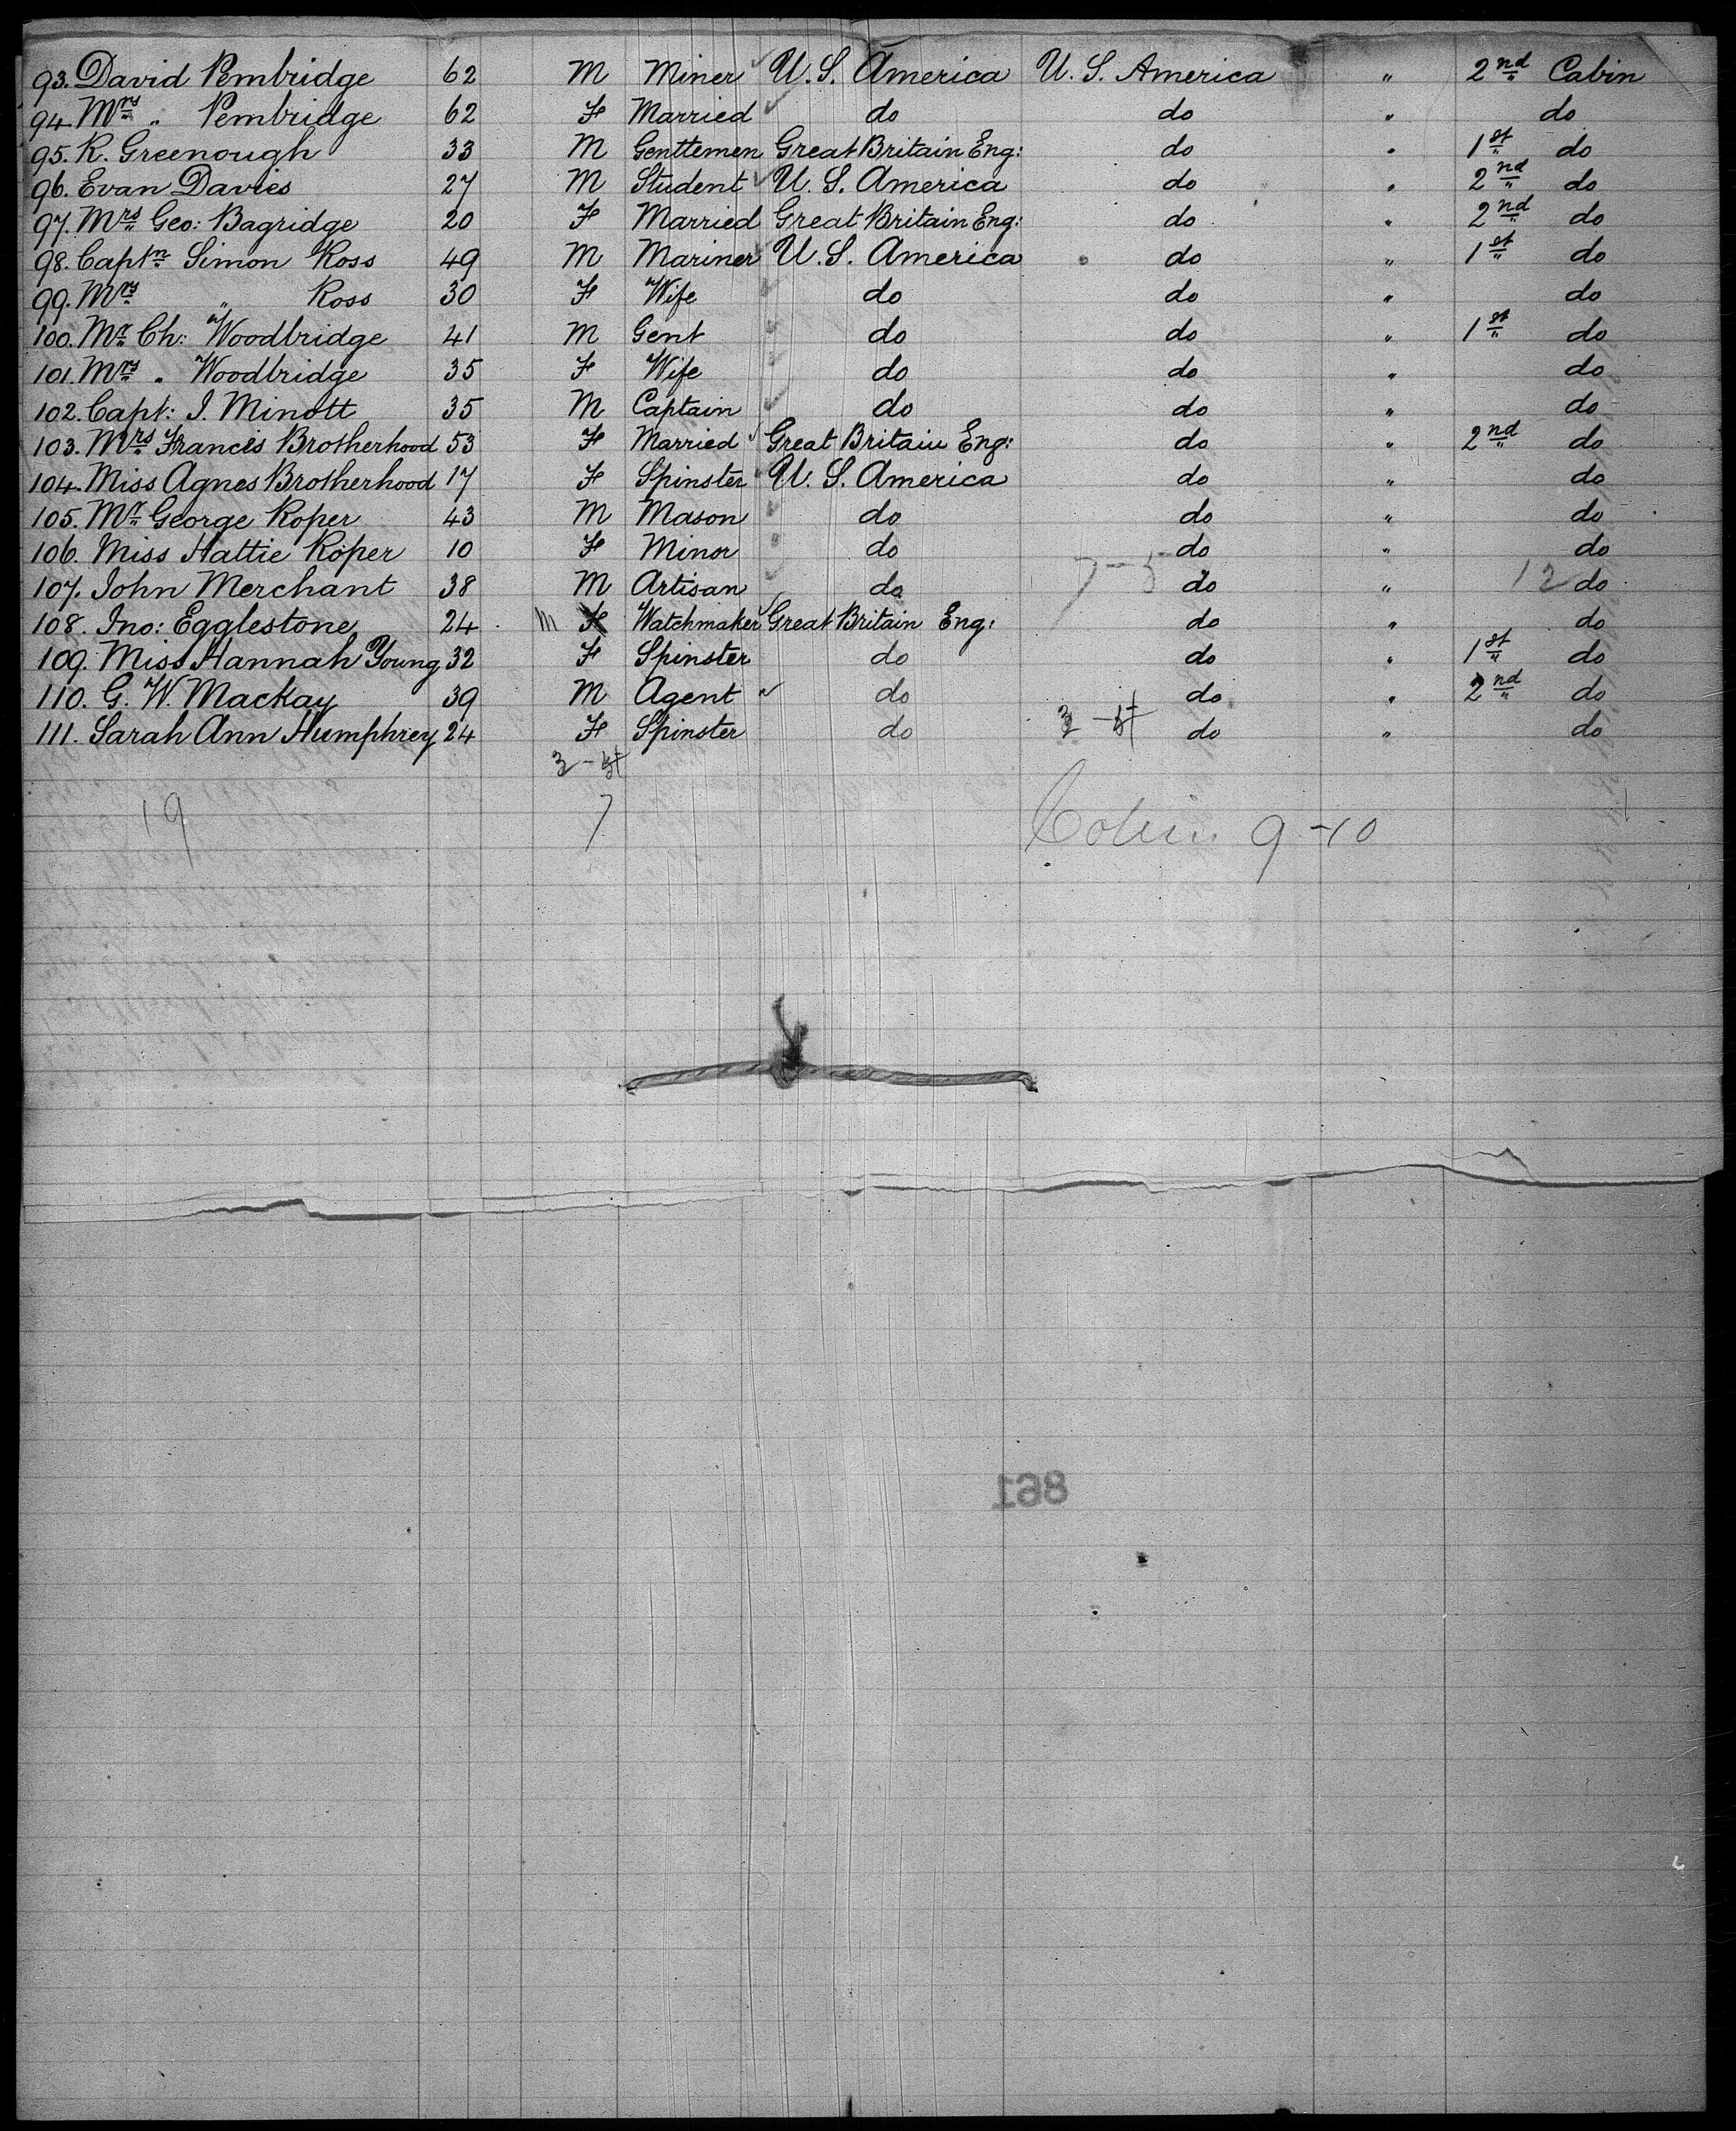 93. David Pembridge 62 M Miner U. S. America U. S. America " 2nd Cabin
94. Mrs " Pembridge 62 F Married do do " do
95. R. Greenough 33 M Genttemen Great Britain Eng: do " 1st do
96. Evan Davies 27 M Student U. S. America do " 2nd do
97. Mrs Geo: Bagridge 20 F Married Great Britain Eng: do " 2nd do
98. Captn Simon Ross 49 M Mariner U. S. America do " 1st do
99. Mrs " Ross 30 F Wife do do " do
100. Mr Ch: Woodbridge 41 M Gent do do " 1st do
101. Mrs " Woodbridge 35 F Wife do do " do
102. Capt: I. Minott 35 M Captain do do " do
103. Mrs Francis Brotherhood 53 F Married Great Britain Eng: do " 2nd do
104. Miss Agnes Brotherhood 17 F Spinster U. S. America do " do
105. Mr George Roper 43 M Mason do do " do
106. Miss Hattie Roper 10 F Minor do do " do
107. John Merchant 38 M Artisan do 7-5 do " 12 do
108. Jno: Egglestone 24 M F Watchmaker Great Britain Eng: do " do
109. Miss Hannah Young 32 F Spinster do do " 1st do
110. G. W. Mackay 39 M Agent do do " 2nd do
111. Sarah Ann Humphrey 24 F Spinster do do " do
19 7 9-10
861